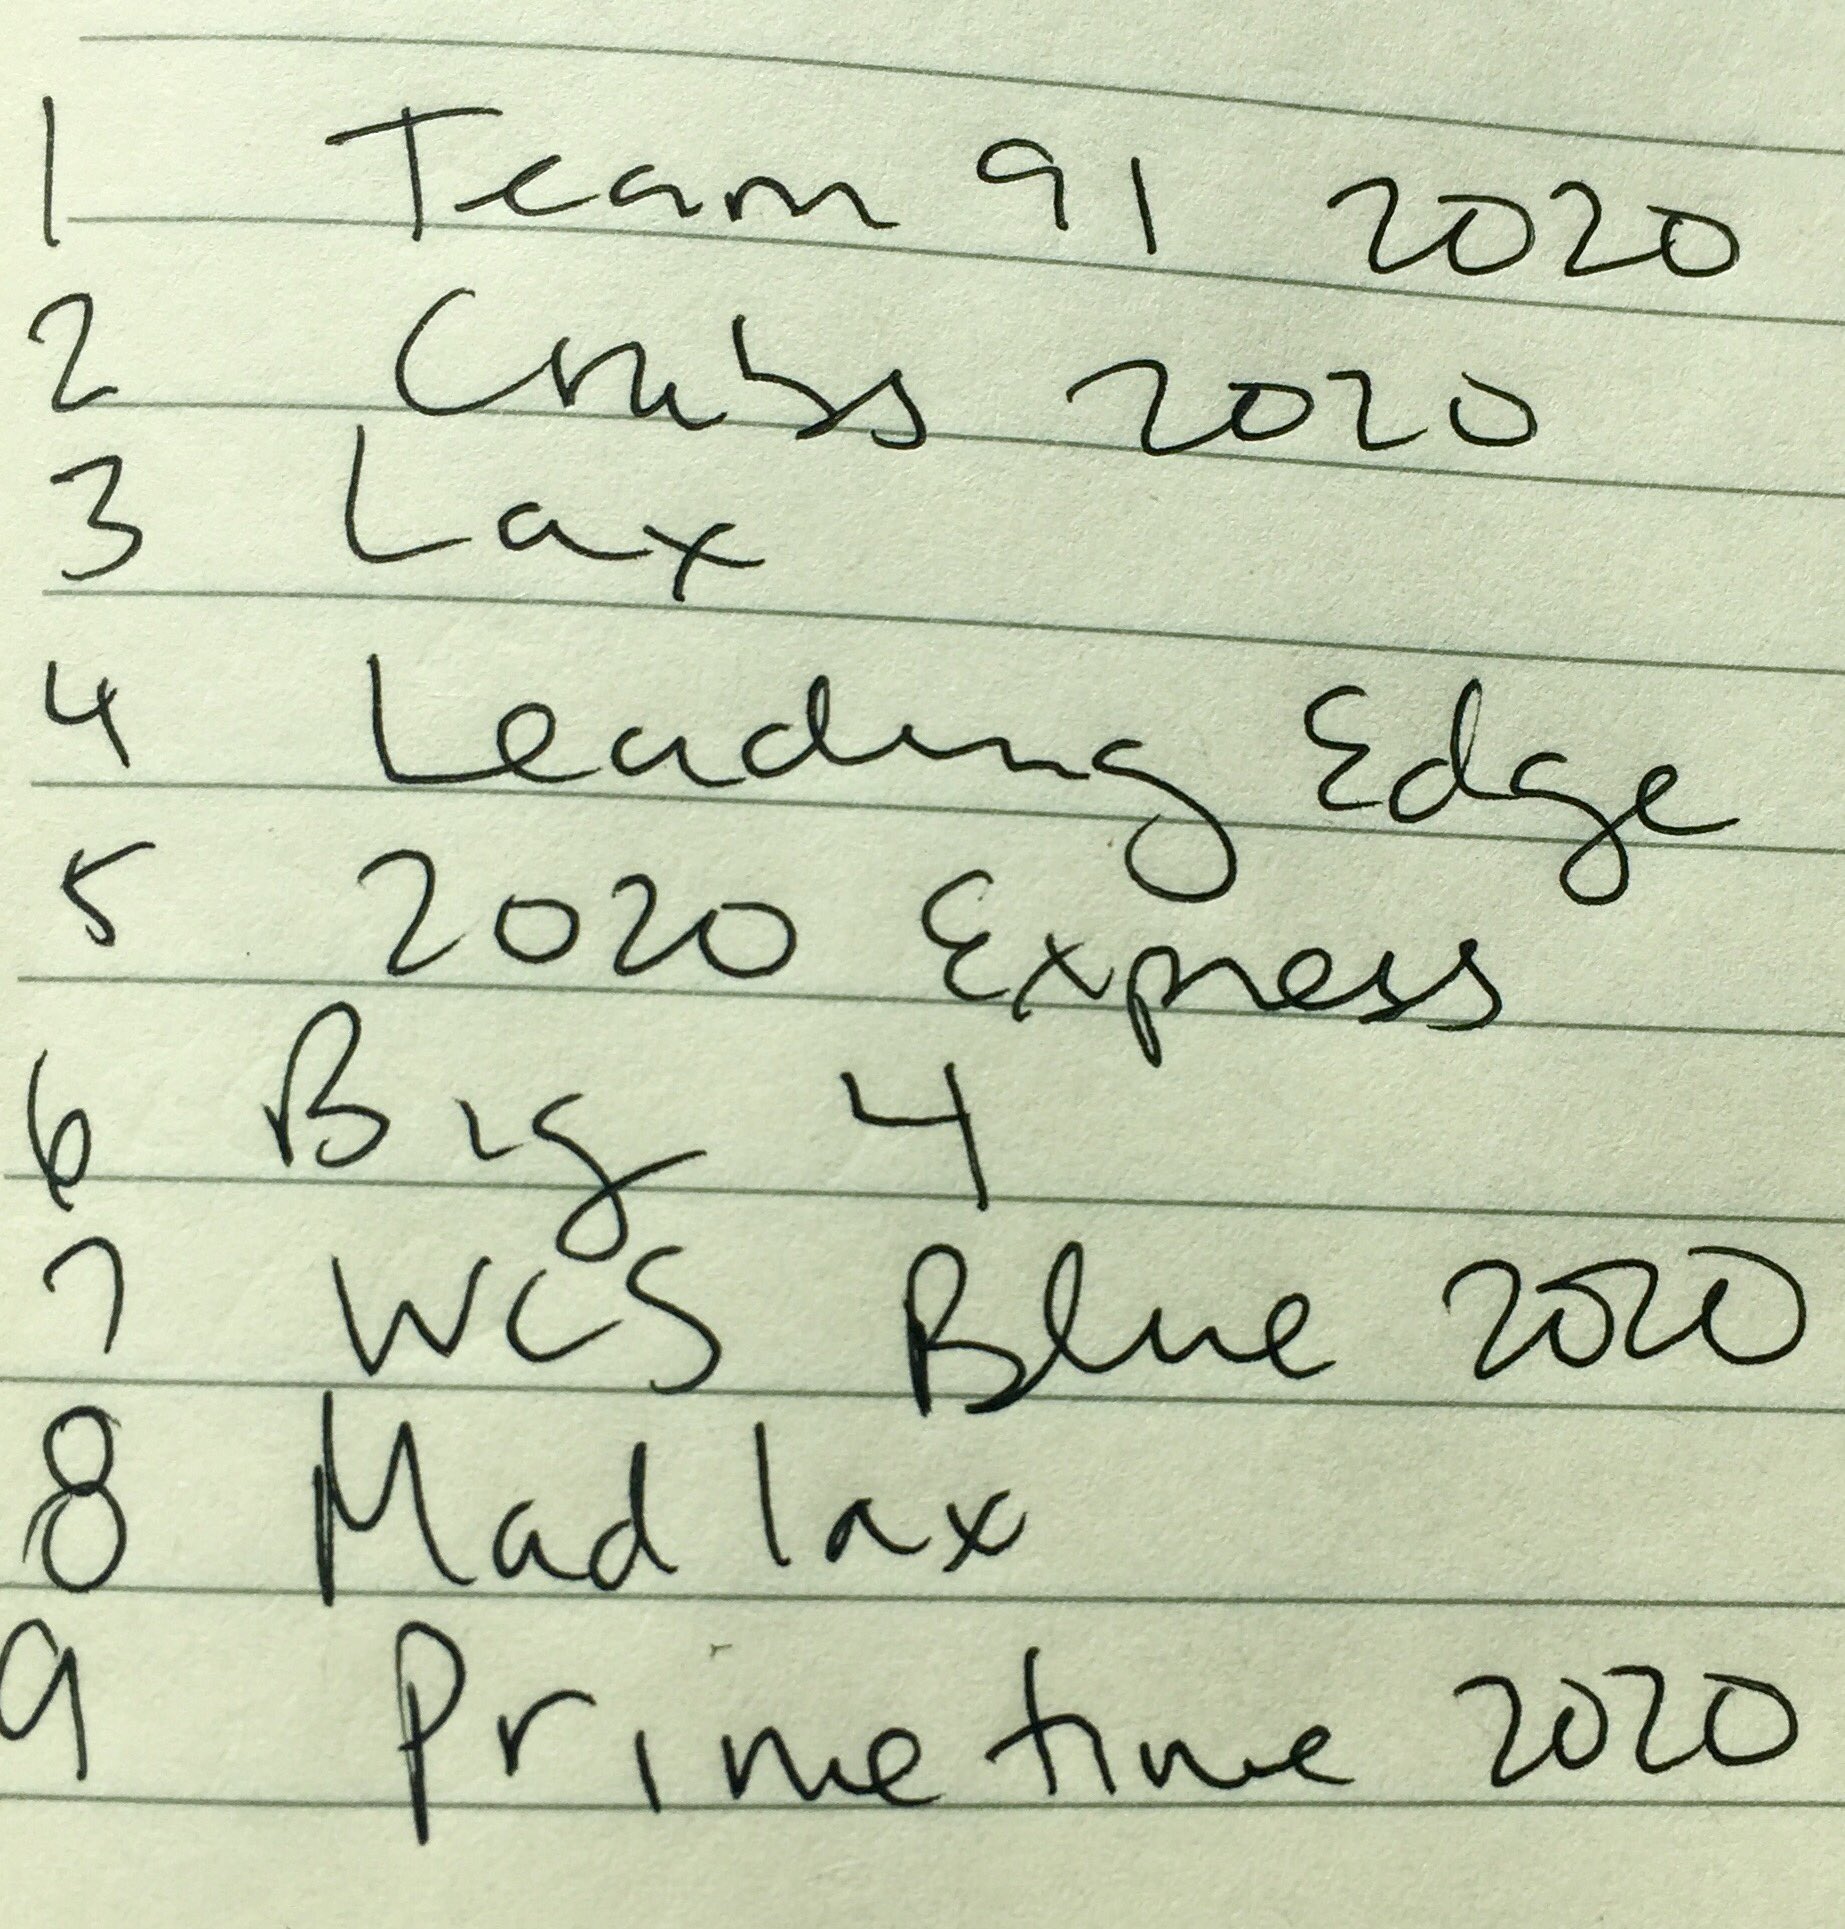 1 Team 91 2020
2 Crabs 2020
3 Lax
4 Leading Edge
5 2020 Express
6 Big 4
7 WCS Blue 2020
8 Mad lax
9 Prime time 2020